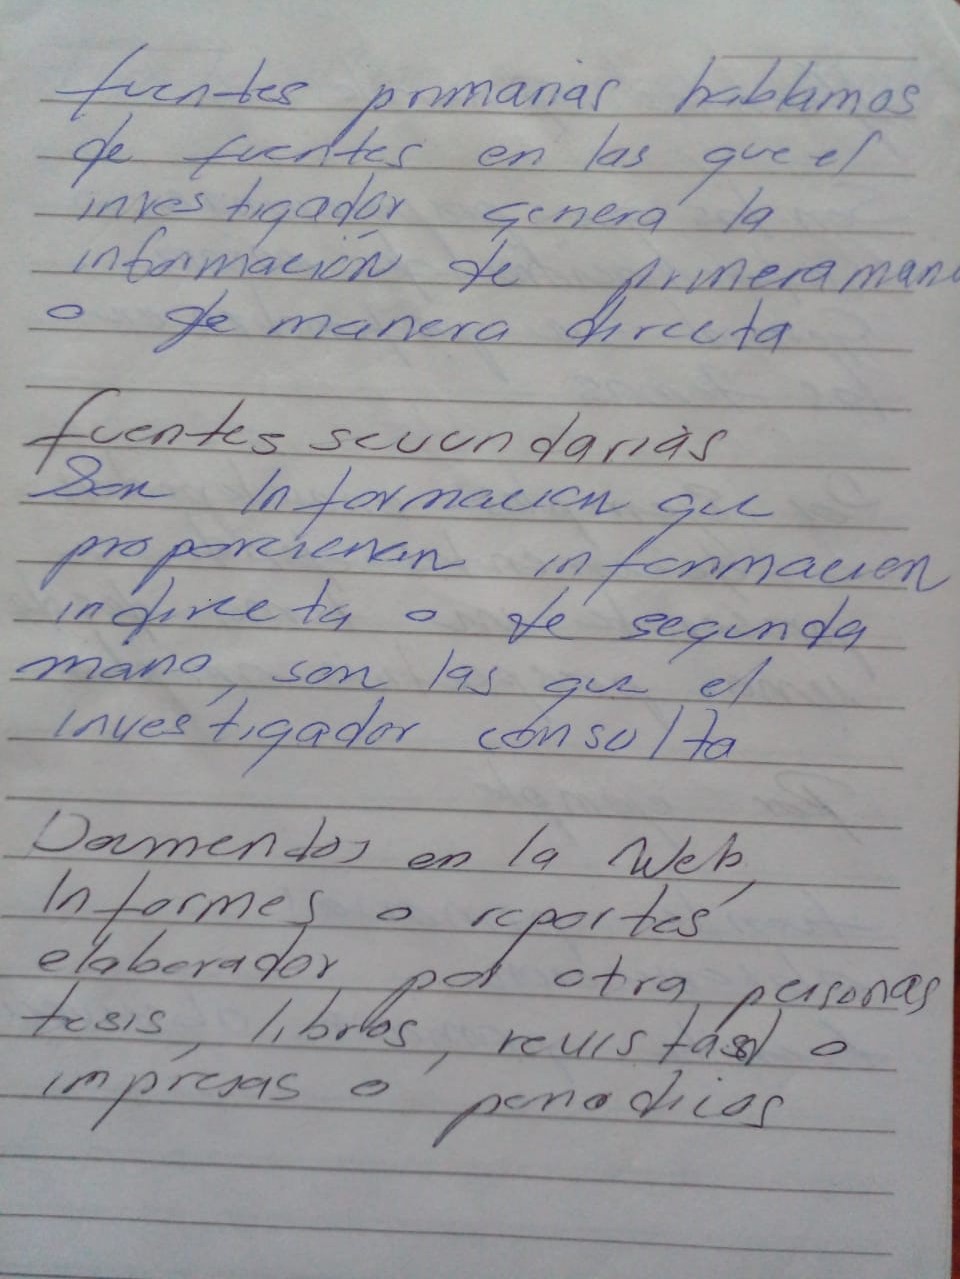 fuentes primarias hablamos
de fuentes en las que el
investigador genera la
información de primera mano
o de manera directa
fuentes secuundarias
Son Informacion que
proporcionan informacion
indirecta o de segunda
mano, son las que el
investigador consulta
Documentos en la Web,
Informes o reportes
elaborador por otra personas
tesis, libros, revistas o
impresas o periodicas